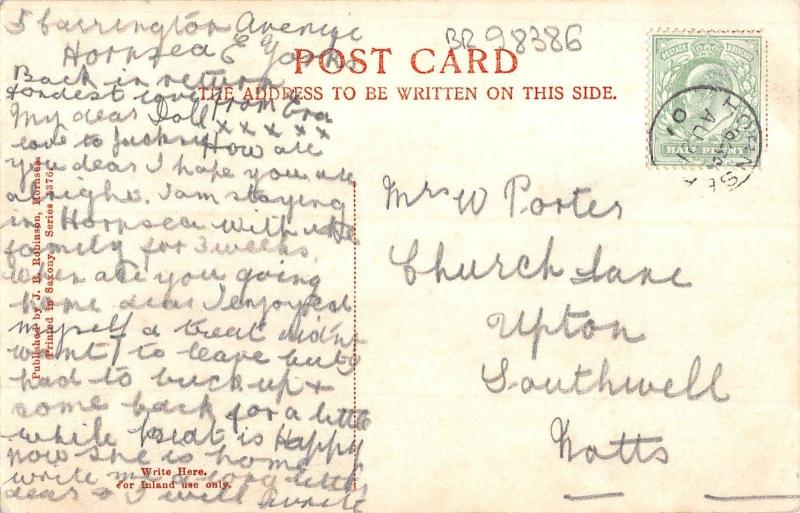 5 Carrington Avenue
Hornsea E Yorks
POST CARD
BR 98386
THE ADDRESS TO BE WRITTEN ON THIS SIDE.
Back in return
fondest love from Eva
x x x x x
My dear Doll
love to
How are
you dear I hope you are
alright. I am staying
in Hornsea with the
family for 3 weeks
when are you going
home dear I enjoyed
myself a treat didnt
want to leave but I
had to buck up &
come back for a little
while is Happy
now she is home
write me a long letter
dear & I will write
Mrs W Porter
Church Lane
Upton
Southwell
Notts
HALF PENNY
POSTAGE
HORNSEA
AU
01
Published by J. B. Robinson, Hornsea.
Printed in Saxony. Series
Write Here.
For Inland use only.